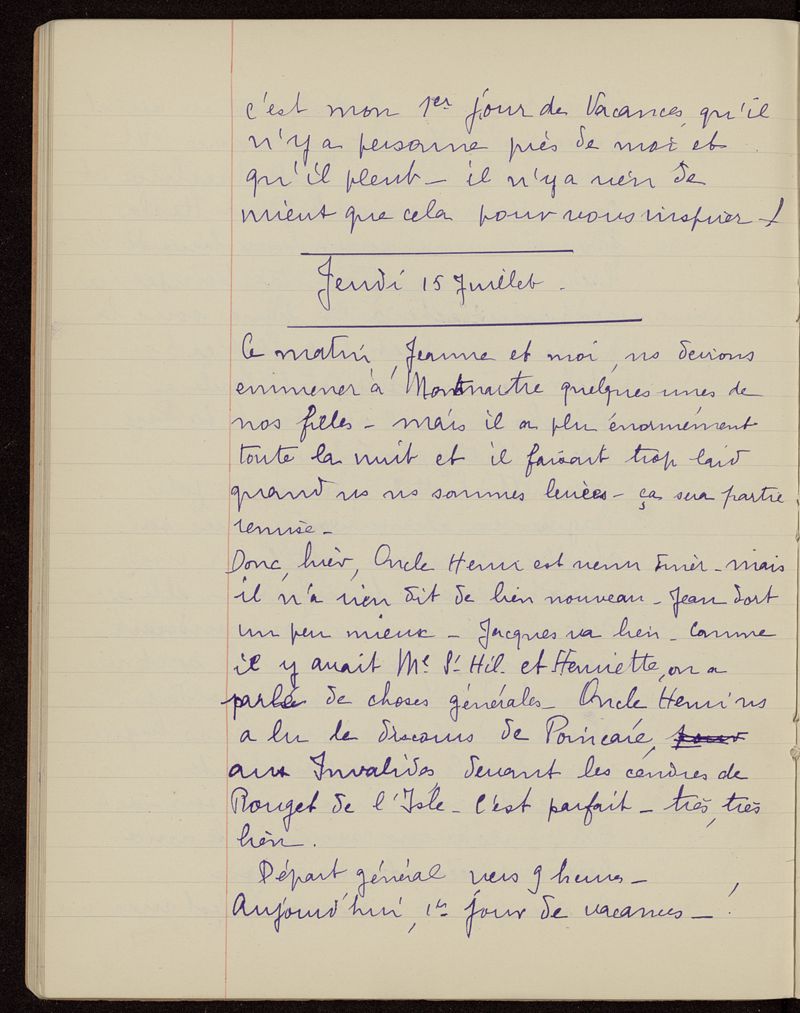 c'est mon 1er jour de Vacances, qu'il
n'y a personne près de moi et
qu'il pleut – il n'y a rien de
mieux que cela pour vous inspirer !
Jeudi 15 Juillet.
Ce matin, Jeanne et moi, ns devions
emmener à Montmartre quelques unes de
nos filles – mais il a plu énormément
toute la nuit et il faisait trop laid
quand ns ns sommes levées – ça sera partie
remise –
Donc, hier, Oncle Henri est venu dîner – mais
il n'a rien dit de bien nouveau – Jean dort
un peu mieux – Jacques va bien – Comme
il y avait Me St Hil. et Henriette, on a
parlé de choses générales – Oncle Henri ns
a lu le discours de Poincaré, pour
aux Invalides devant les cendres de
Rouget de l'Isle – C'est parfait – très, très
bien.
Départ général vers 9 heures –
Aujourd'hui, 1er jour de vacances – !